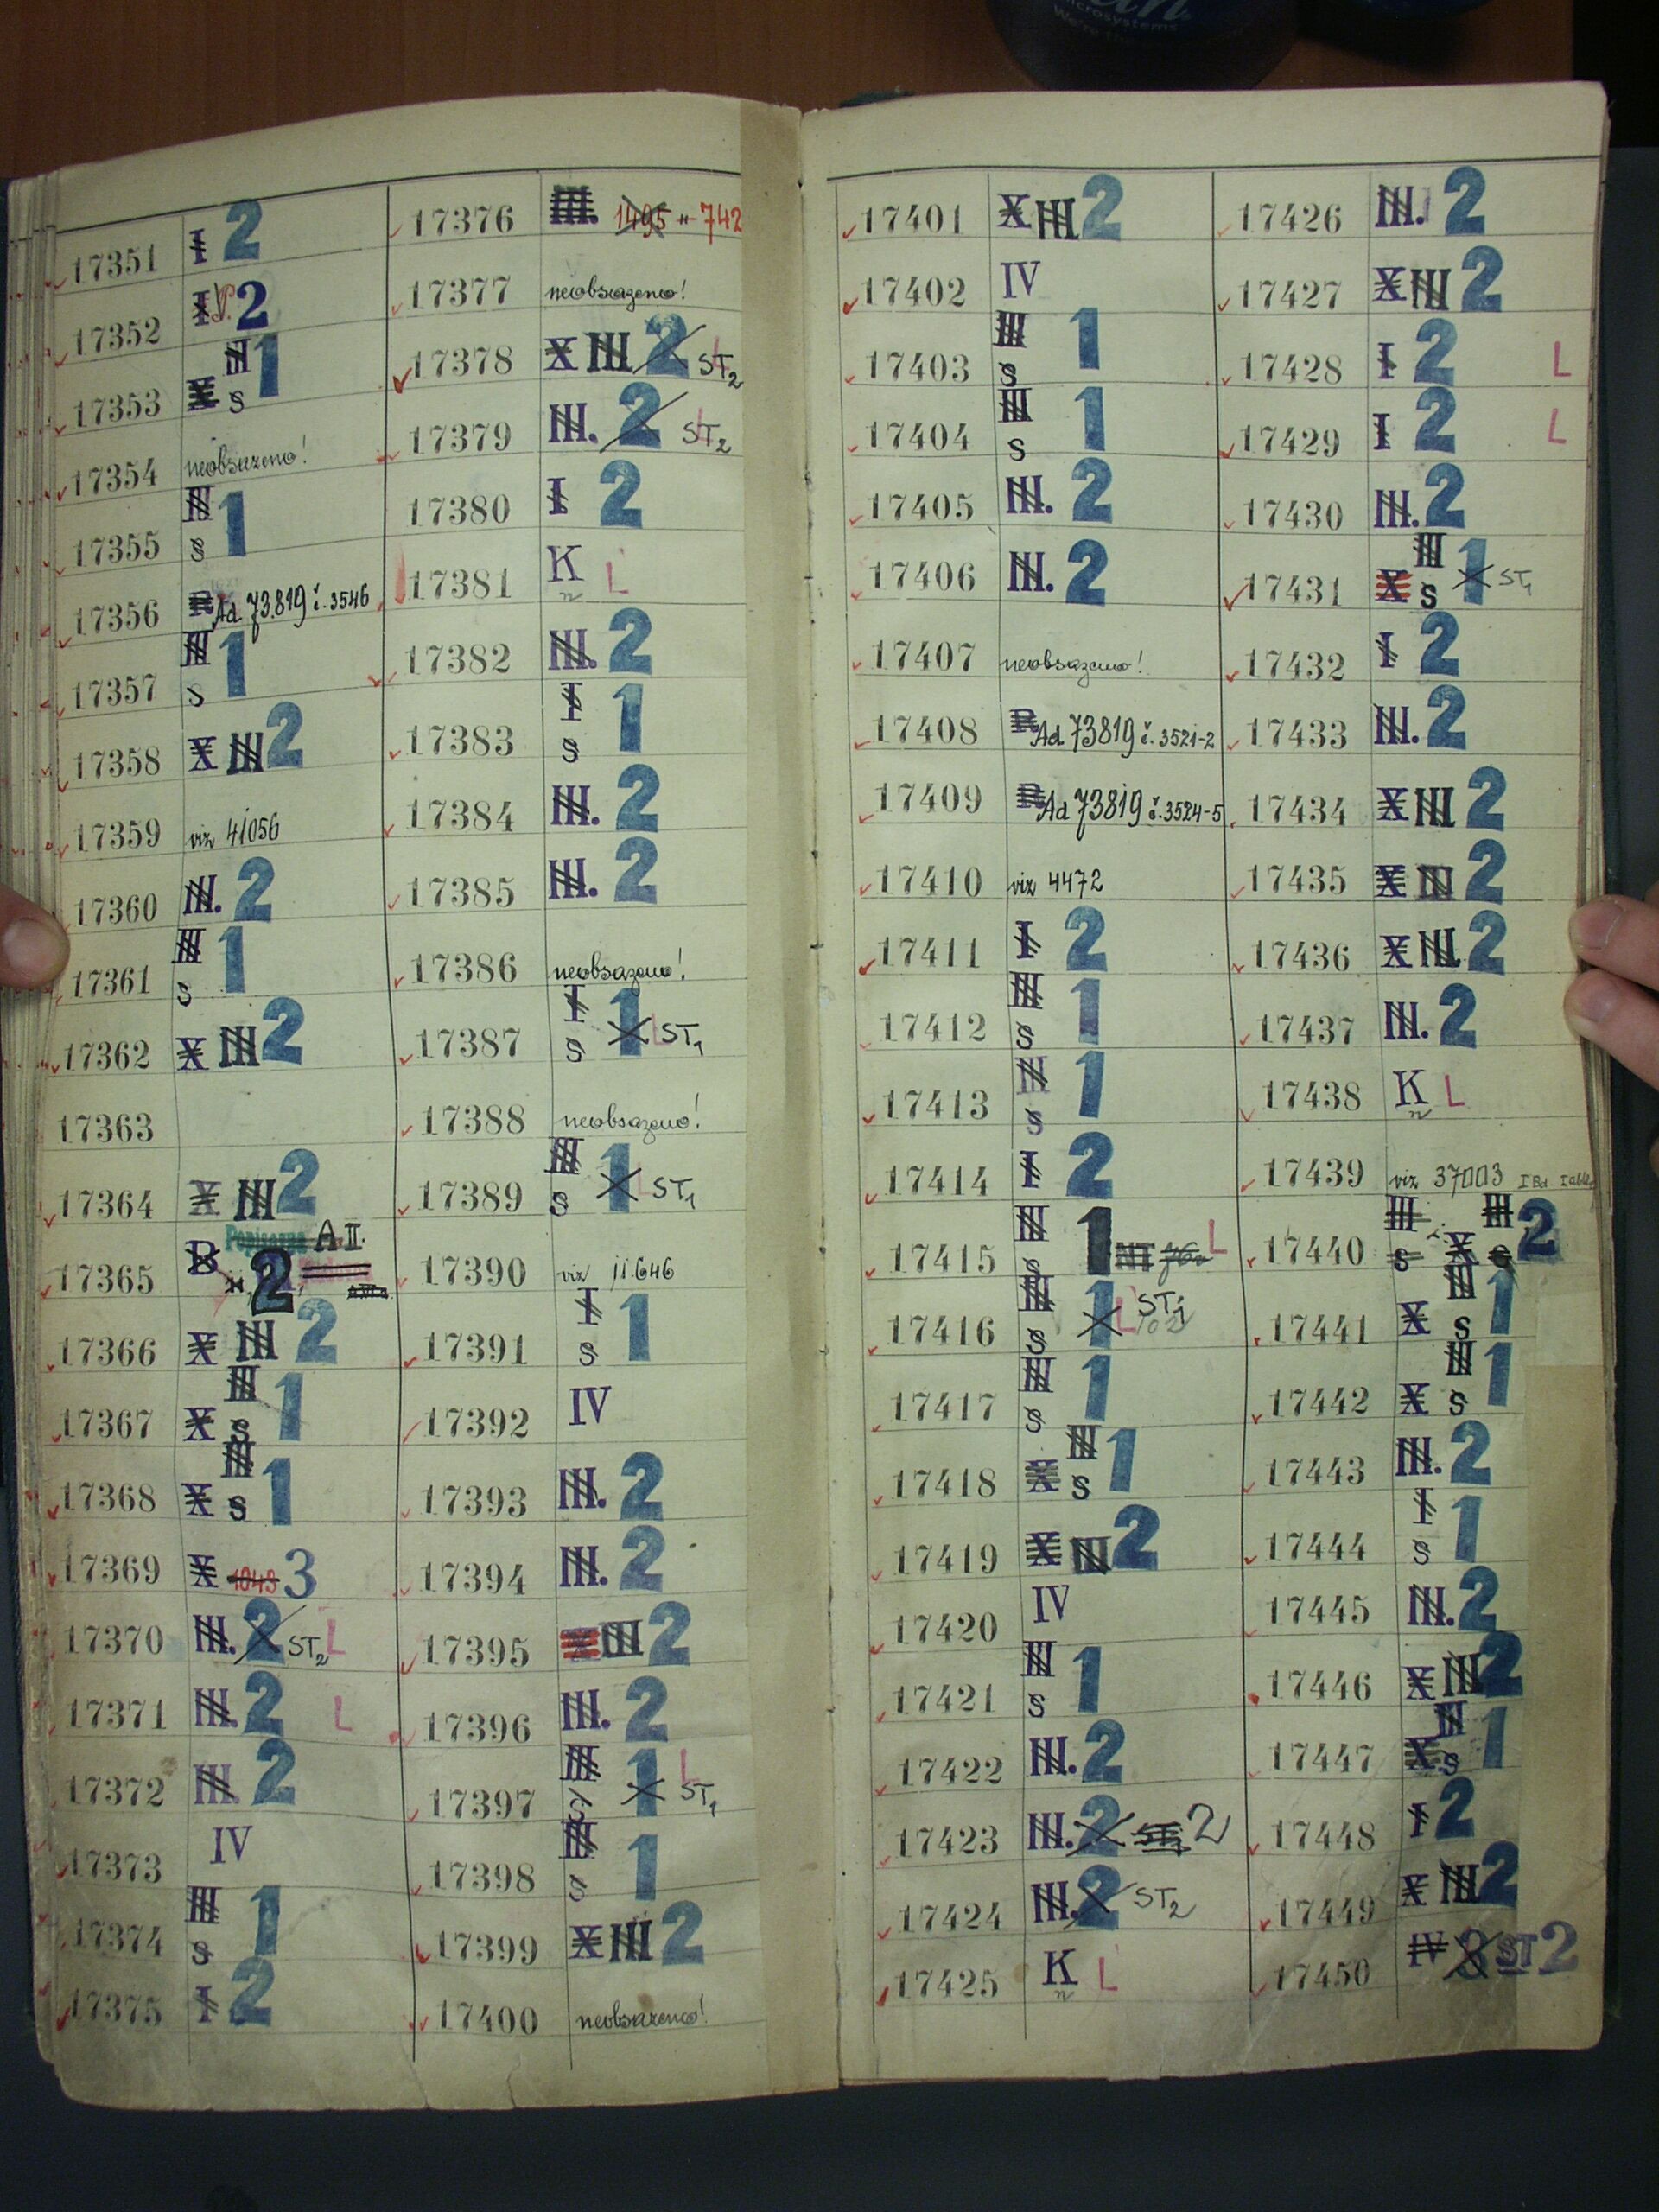 Microsystems
17351 I 2
17352 I 2
17353 X III s 1
17354 neobsazeno!
17355 III s 1
17356 R Ad 73.819 č. 3546
17357 III s 1
17358 X III 2
17359 viz 41056
17360 III. 2
17361 III s 1
17362 X III 2
17363
17364 X III 2
17365 B 2 A II.
17366 X III 2
17367 X III s 1
17368 X III s 1
17369 X 1049 3
17370 III. 2 ST2 L
17371 III. 2 L
17372 III. 2
17373 IV
17374 III s 1
17375 I 2
17376 III. 1495 742
17377 neobsazeno!
17378 X III 2 L ST2
17379 III. 2 L ST2
17380 I 2
17381 K n L
17382 III. 2
17383 I s 1
17384 III. 2
17385 III. 2
17386 neobsazeno!
17387 I s 1 L ST1
17388 neobsazeno!
17389 III s 1 L ST1
17390 viz 11.646
17391 I s 1
17392 IV
17393 III. 2
17394 III. 2
17395 X III 2
17396 III. 2
17397 III s 1 L ST1
17398 III s 1
17399 X III 2
17400 neobsazeno!
17401 X III 2
17402 IV
17403 III s 1
17404 III s 1
17405 III. 2
17406 III. 2
17407 neobsazeno!
17408 R Ad 73819 č. 3521-2
17409 R Ad 73819 č. 3524-5
17410 viz 4472
17411 I 2
17412 III s 1
17413 III s 1
17414 I 2
17415 III s 1 L
17416 III s 1 L ST1
17417 III s 1
17418 X III s 1
17419 X III 2
17420 IV
17421 III s 1
17422 III. 2
17423 III. 2 2
17424 III. 2 ST2
17425 K n L
17426 III. 2
17427 X III 2
17428 I 2 L
17429 I 2 L
17430 III. 2
17431 X III s 1 ST1
17432 I 2
17433 III. 2
17434 X III 2
17435 X III 2
17436 X III 2
17437 III. 2
17438 K n L
17439 viz 37003
17440 III s X III s 2
17441 X III s 1
17442 X III s 1
17443 III. 2
17444 I s 1
17445 III. 2
17446 X III 2
17447 X III s 1
17448 I 2
17449 X III 2
17450 IV 3 ST 2